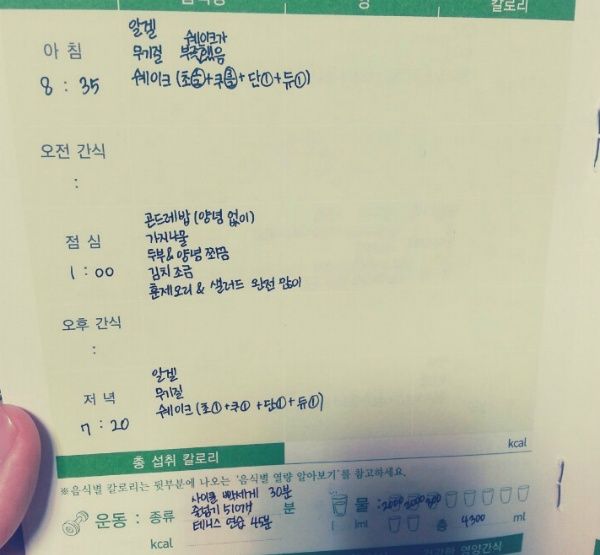 칼로리
알겔
쉐이크가
아 침
무기질
부족했음
8 : 35
쉐이크 (초+쿠+단①+듀①)
오전 간식
:
곤드레밥 (양념 없이)
점 심
가지나물
두부&양념 쪼끔
1 : 00
김치 조금
훈제오리 & 샐러드 완전 많이
오후 간식
:
알겔
저 녁
무기질
쉐이크 (초①+쿠①+단①+듀①)
7 : 20
kcal
총 섭취 칼로리
※음식별 칼로리는 뒷부분에 나오는 '음식별 열량 알아보기'를 참고하세요.
운동 : 종류
사이클 빡세게 30분
줄넘기 510개
테니스 연습 45분
분
물 :
ml
총 4300 ml
kcal
열량간식